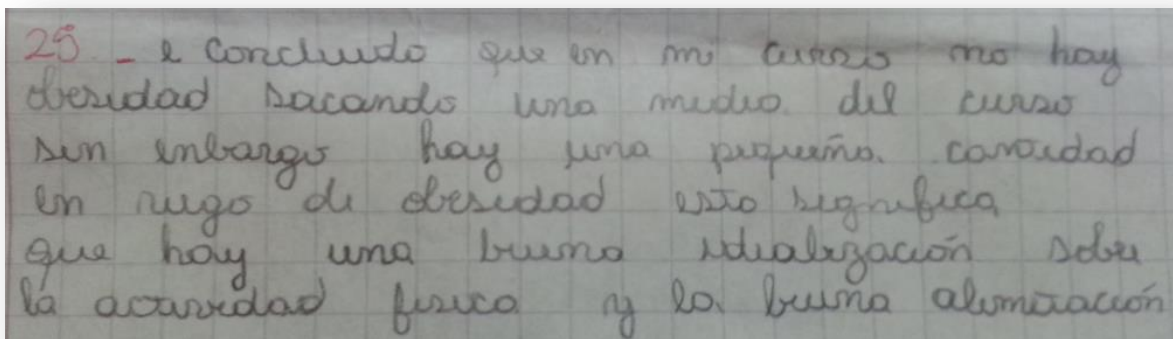 25 - e concluido que en mi curso no hay
obesidad sacando una media del curso
sin enbargo hay una pequeña cantidad
en riesgo de obesidad esto significa
que hay una buena idealización sobre
la actividad fisica y la buena alimentación